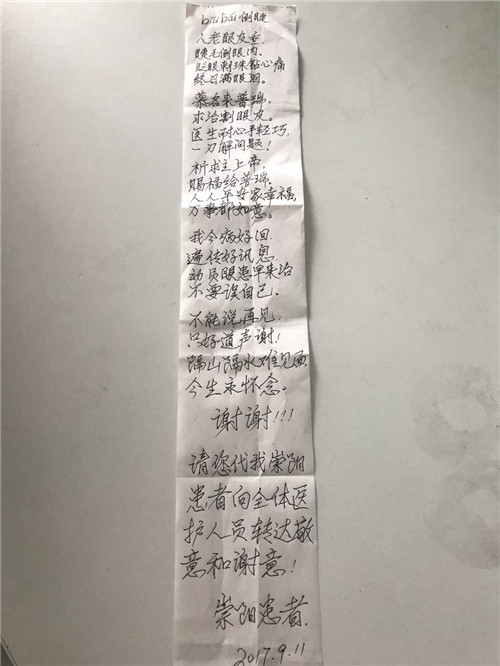 bai bai 倒睫
人老眼皮垂,
睫毛倒眼内.
眨眼刺珠钻心痛
终日满眼泪。
慕名来普瑞,
求治割眼皮。
医生耐心手轻巧,
一刀解问题！
祈求主上帝,
赐福给普瑞.
人人平安家幸福,
万事都如意。
我今病好回
遍传好讯息.
动员眼患早来治
不要误自己.
不能说再见
只好道声谢!
隔山隔水难见面,
今生永怀念。
谢谢!!!
请您代我崇阳
患者向全体医
护人员转达敬
意和谢意!
崇阳患者.
2017.9.11